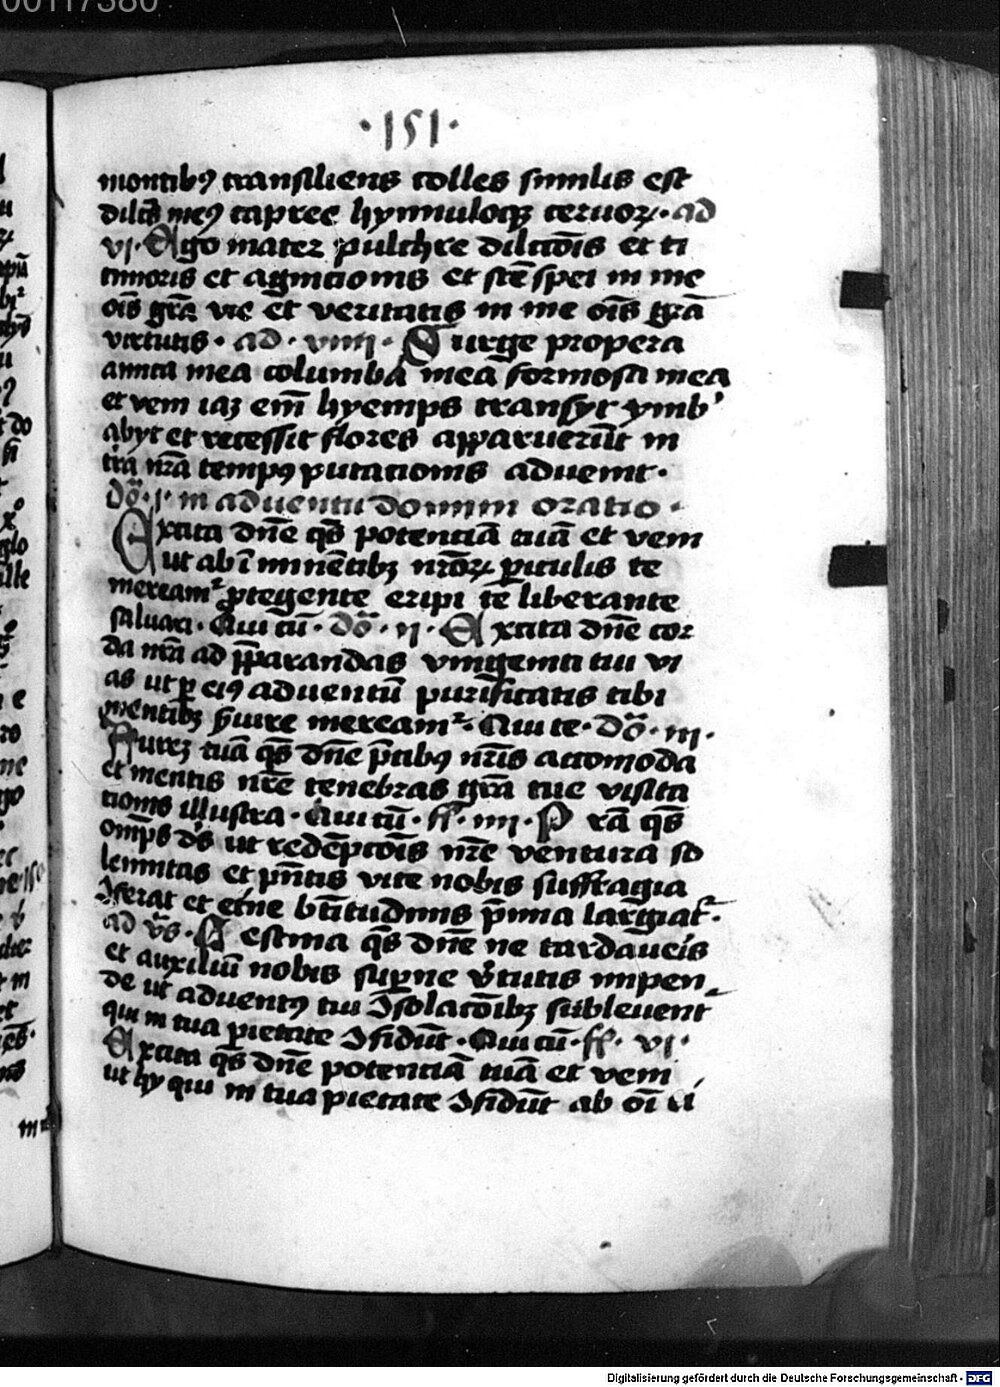 ·151·
montibꝫ transiliens colles similis est
dilcūs meꝰ capree hynnuloqꝫ ceruoꝝ · ad
vj · Ego mater pulchre dilcōis et ti
timoris et agnicionis et scē spei in me
oīs grā vie et veritatis in me oīs grā
virtutis · ad · viiij · Surge propera
amica mea columba mea formosa mea
et veni iaꝫ eīn hyemps transyt ymb'
abyt et recessit flores apparuerūt in
trā nrā tempꝰ putationis aduenit ·
Dō · j · in aduentu domini oratio ·
Excita dn̄e qs̄ potentiā tuā et veni
ut ab īminentibꝫ nr̄oꝝ ꝑiculis te
mereamr̄ ꝓtegente eripi te liberante
saluari · Qui cū · Dō · ij · Excita dn̄e cor
da nrā ad p̄parandas vnigeniti tui vi
as ut ꝑ eiꝰ aduentū purificatis tibi
mentibꝫ s̄uire mereamr̄ · Qui te · Dō · iij ·
Aureꝫ tuā qs̄ dn̄e p̄cibꝰ nr̄is accomoda
et mentis nr̄e tenebras grā tue visita
tionis illustra · Qui cū · ff · iiij · P rā qs̄
omp̄s ds̄ ut redēpcōis nr̄e ventura so
lemnitas et pn̄tis vite nobis suffragia
ꝯferat et et̄ne bt̄itudinis p̄mia largiat̄ ·
ad v̄s · F estina qs̄ dn̄e ne tardaueīs
et auxiliū nobis suꝑne v̄tutis impen
de ut aduentꝰ tui ꝯsolacōibꝫ subleuent
qui in tua pietate ꝯfidūt · Qui cū · ff · vj ·
Excita qs̄ dn̄e potentiā tuā et veni
ut hy qui in tua pietate ꝯfidūt ab oī ci
Digitalisierung gefördert durch die Deutsche Forschungsgemeinschaft - DFG